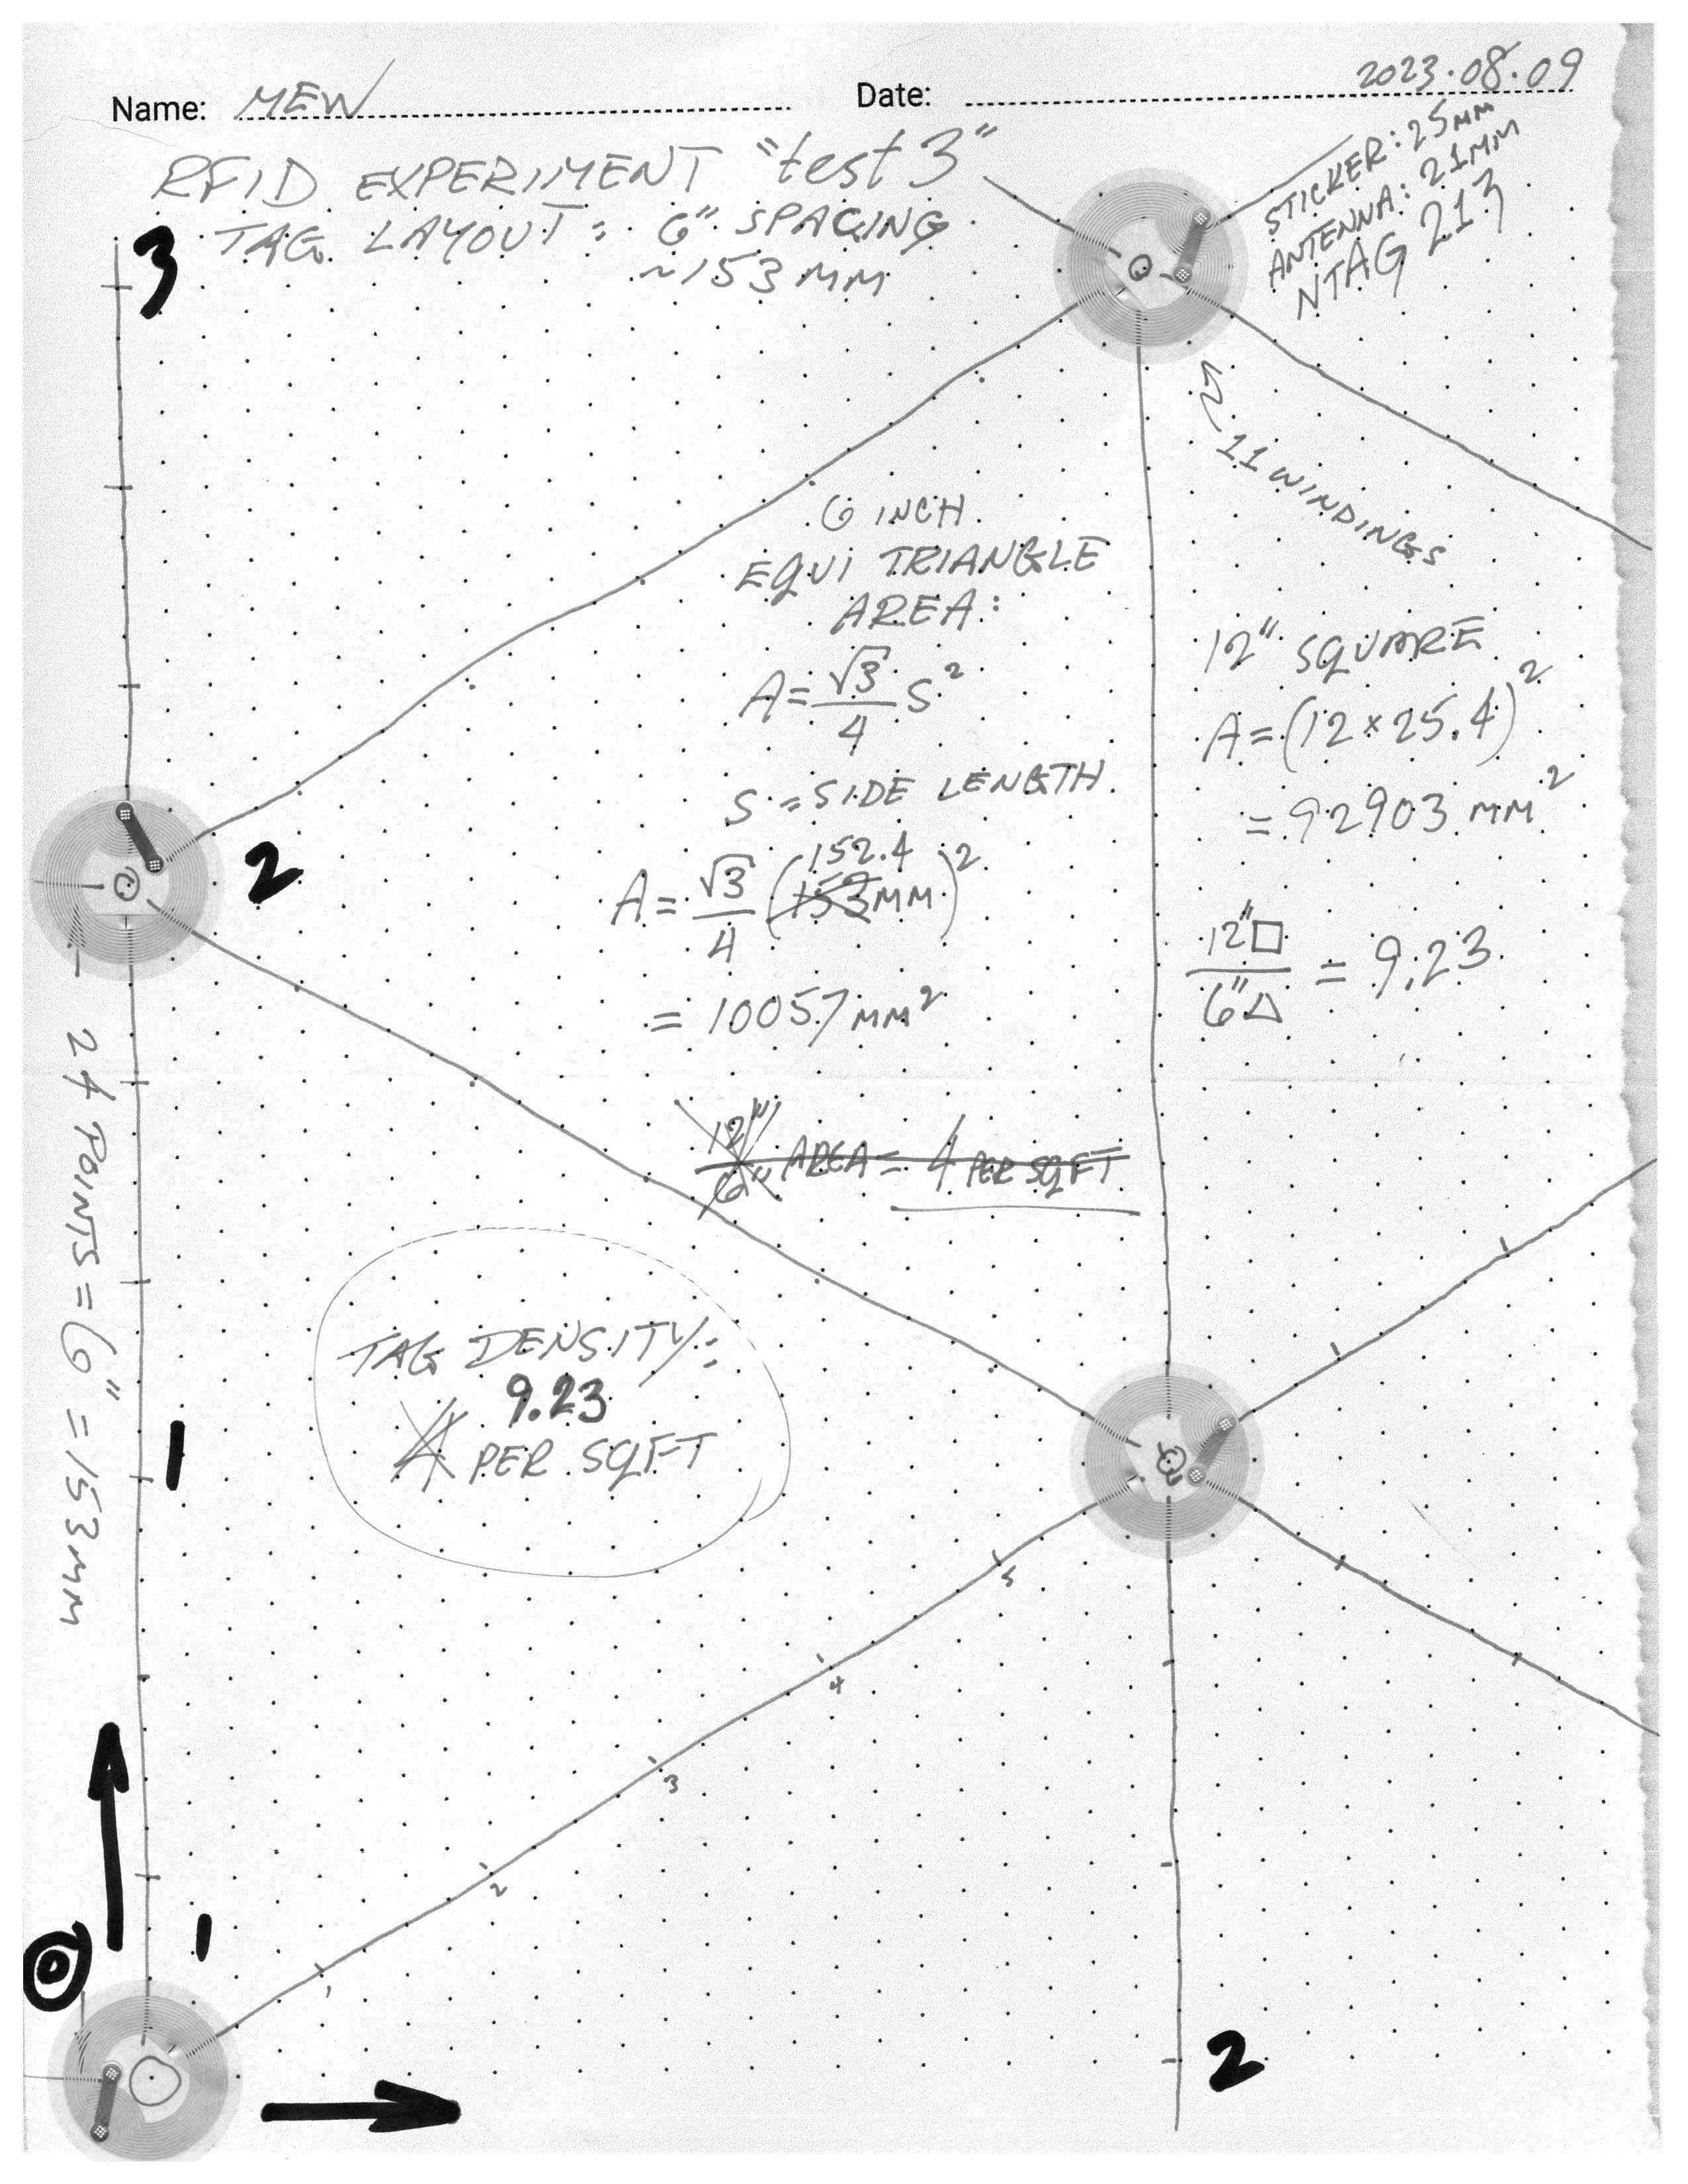 Name: MEW
Date: 2023.08.09
RFID EXPERIMENT "test 3"
TAG LAYOUT: 6" SPACING
~153 MM
STICKER: 25MM
ANTENNA: 21MM
NTAG 213
11 WINDINGS
3
6 INCH
EQUI TRIANGLE
AREA:
A = √3/4 S²
S = SIDE LENGTH
152.4
A = √3/4 (153MM)²
= 10057 MM²
12" SQUARE
A = (12 × 25.4)²
= 92903 MM²
12"□/6"△ = 9.23
2
12"/6" AREA = 4 PER SQFT
TAG DENSITY:
9.23
4 PER SQFT
24 POINTS = 6" = 153MM
1
5
4
3
2
1
1
0
2